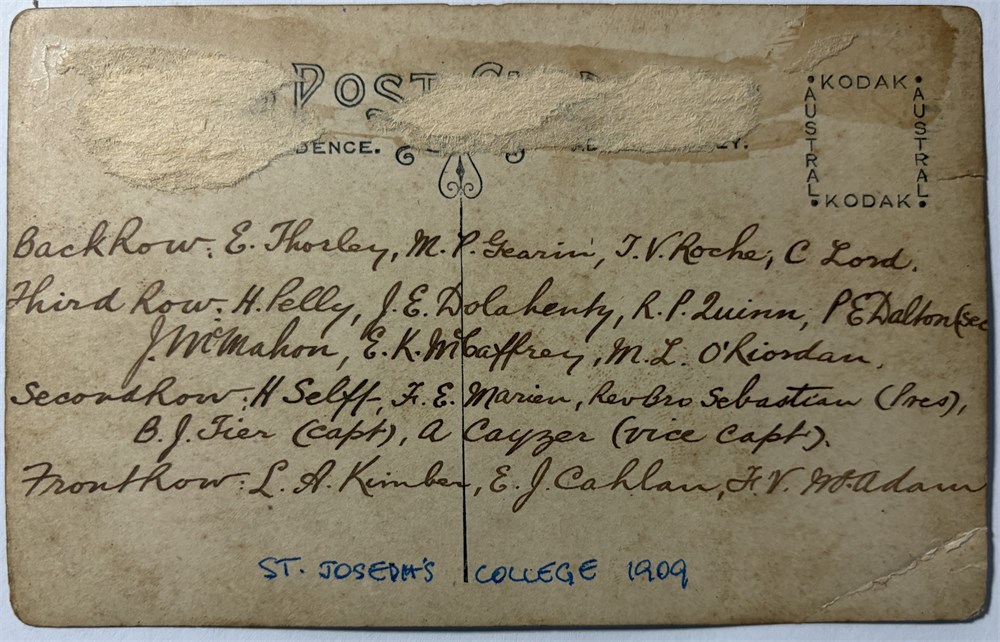 POST
KODAK
AUSTRAL
AUSTRAL
KODAK
Back Row: E. Thorley, M. P. Gearin, T. V. Roche, C Lord.
Third Row: H. Pelly, J. E. Dolahenty, R. P. Quinn, P E Dalton (sec
J. McMahon, E. K. McCaffrey, M. L. O'Riordan.
Second Row: H Selff, F. E. Marien, Rev Bro Sebastian (Pres),
B. J. Tier (capt), A Cayzer (vice capt).
Front Row: L. A. Kimber, E. J. Cahlan, F. V. McAdam
ST. JOSEPH'S COLLEGE 1909